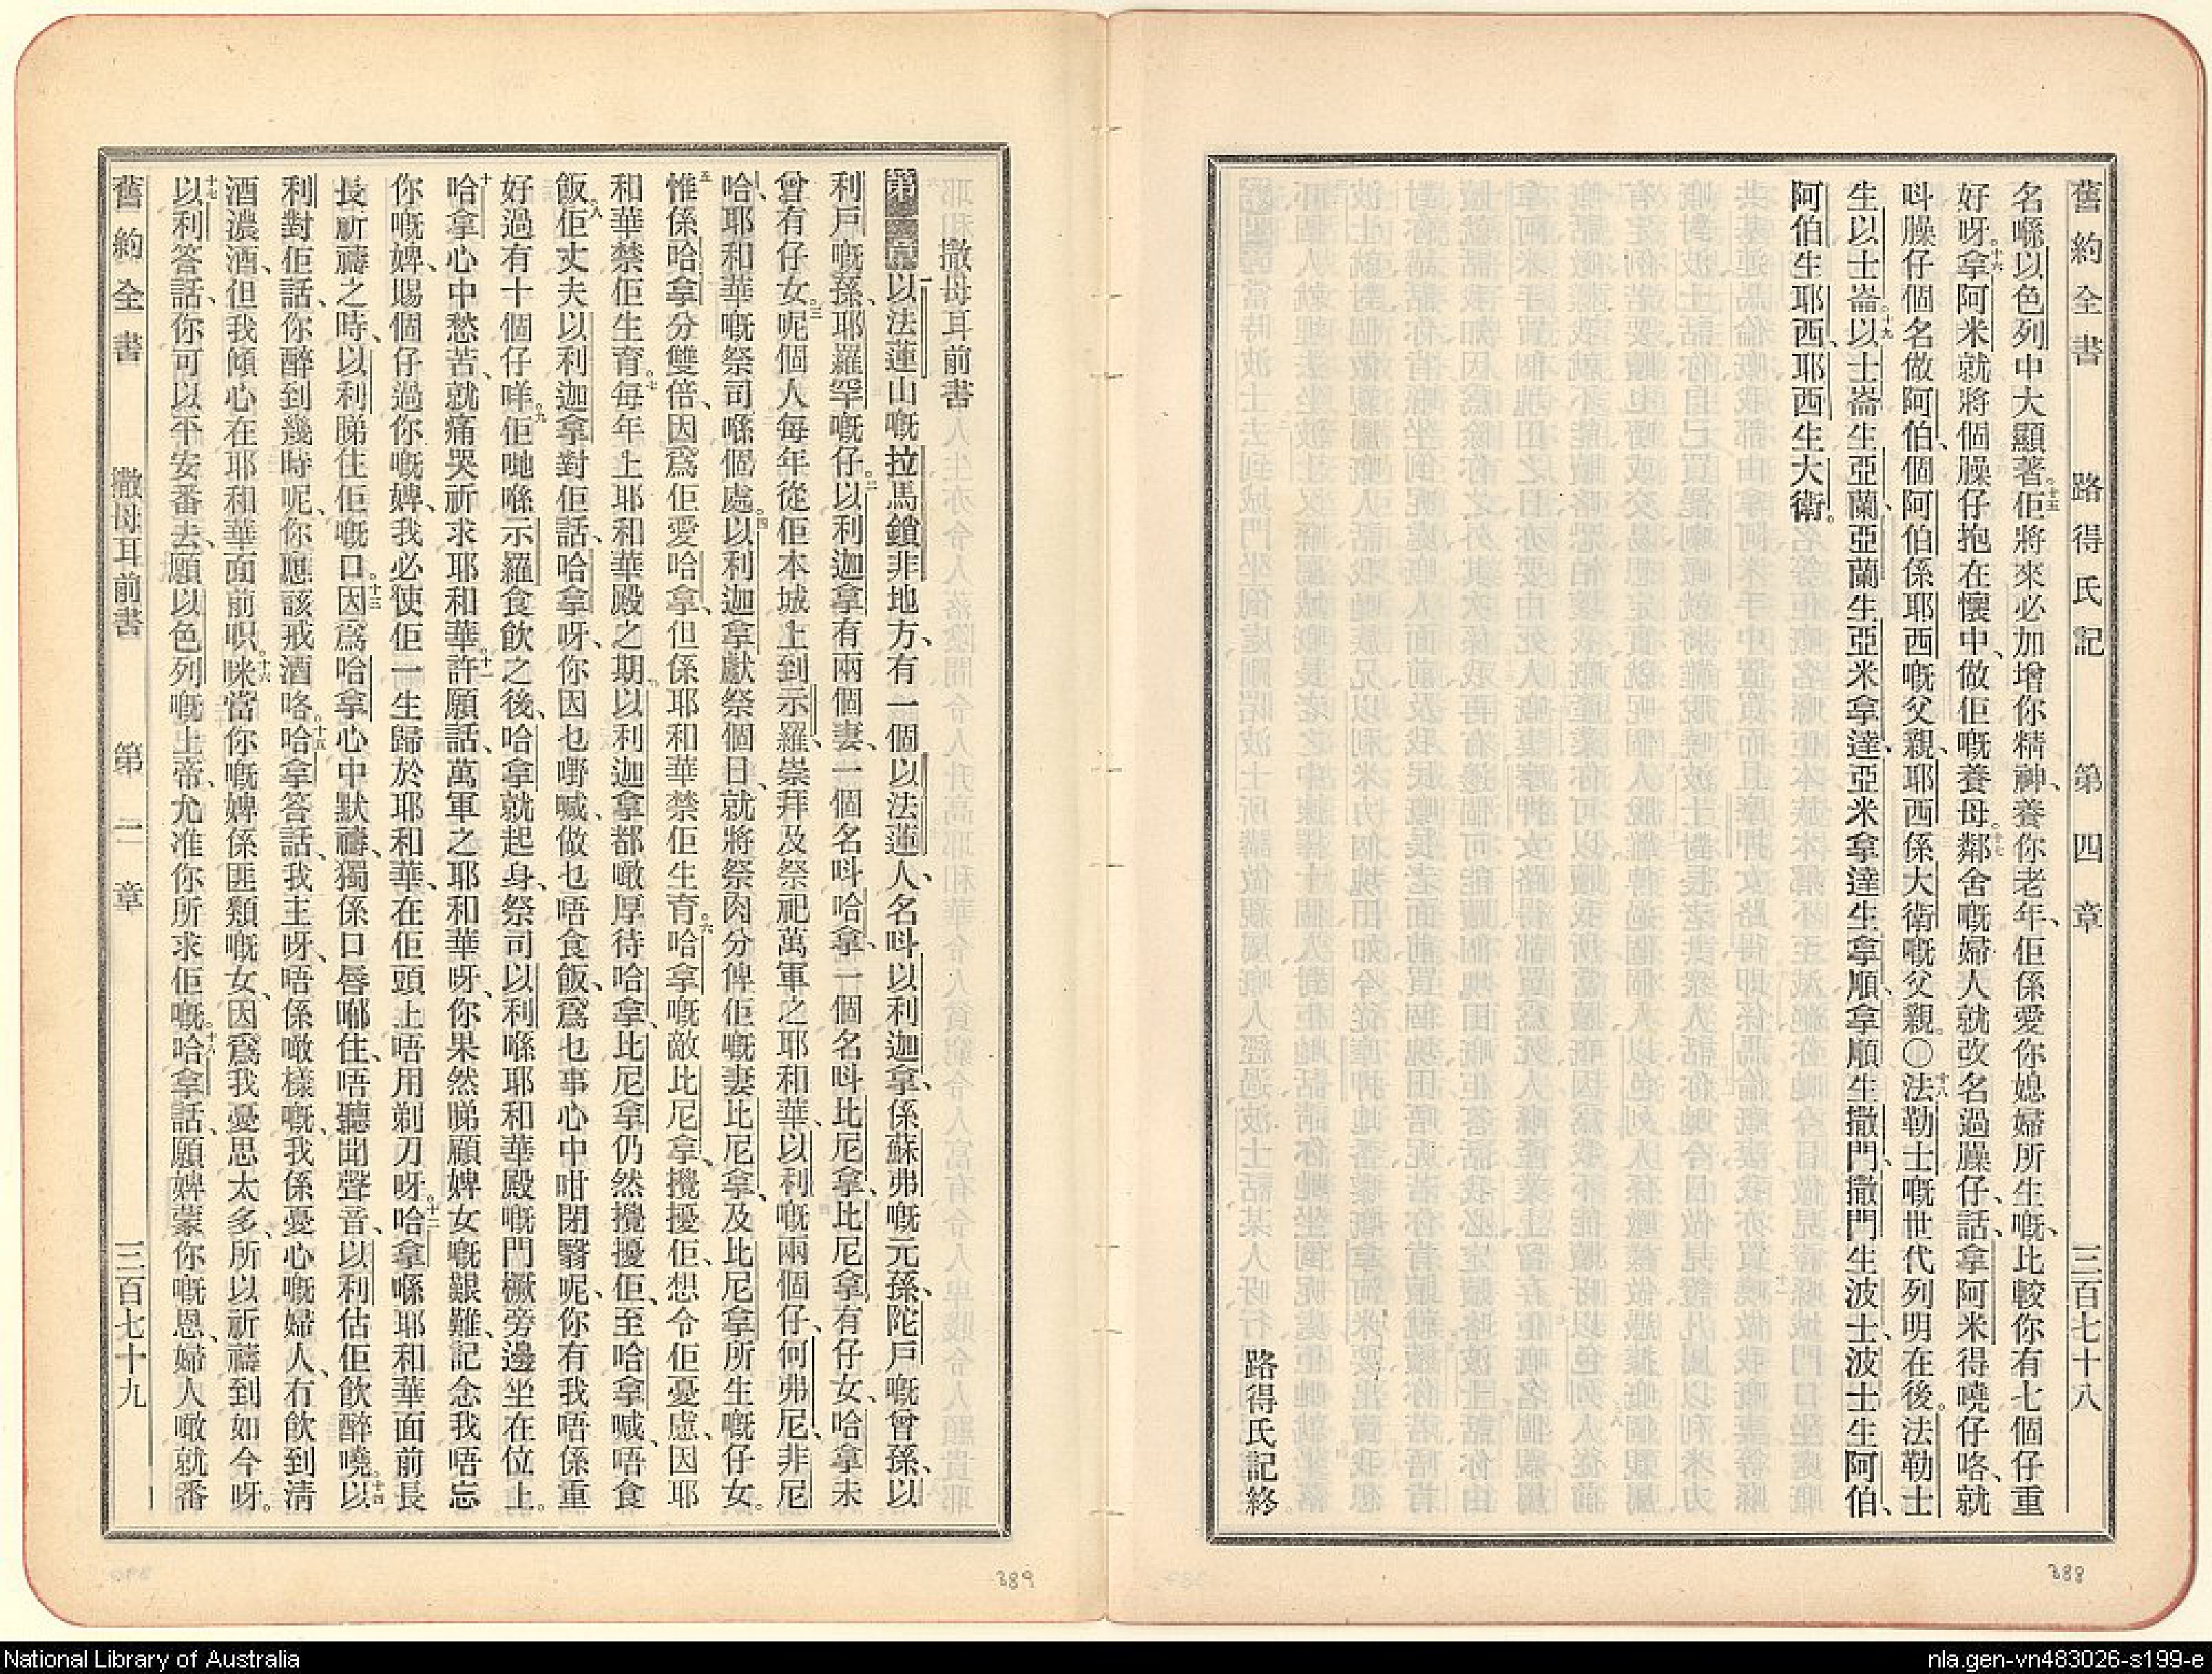 舊約全書 路得氏記 第四章 三百七十八
名喺以色列中大顯著。十五佢將來必加增你精神、養你老年、佢係愛你媳婦所生嘅、比較你有七個仔重
好呀。十六拿阿米就將個臊仔抱在懷中、做佢嘅養母。十七鄰舍嘅婦人就改名過臊仔、話、拿阿米得嘵仔咯、就
呌臊仔個名做阿伯、個阿伯係耶西嘅父親、耶西係大衛嘅父親。〇十八法勒士嘅世代列明在後。法勒士
生以士崙。十九以士崙生亞蘭、亞蘭生亞米拿達、亞米拿達生拿順、拿順生撒門、撒門生波士、波士生阿伯、
阿伯生耶西、耶西生大衛。
路得氏記終
撒母耳前書
第一章 一以法蓮山嘅拉馬鎖非地方、有一個以法蓮人、名呌以利迦拿、係蘇弗嘅元孫、陀戶嘅曾孫、以
利戶嘅孫、耶羅罕嘅仔。二以利迦拿有兩個妻、一個名呌哈拿、一個名呌比尼拿、比尼拿有仔女、哈拿未
曾有仔女。三呢個人每年從佢本城上到示羅、崇拜及祭祀萬軍之耶和華、以利嘅兩個仔、何弗尼、非尼
哈、耶和華嘅祭司喺個處。四以利迦拿獻祭個日、就將祭肉分俾佢嘅妻比尼拿、及比尼拿所生嘅仔女。
五惟係哈拿分雙倍、因爲佢愛哈拿、但係耶和華禁佢生育。六哈拿嘅敵比尼拿、攪擾佢、想令佢憂慮、因耶
和華禁佢生育。七每年上耶和華殿之期、以利迦拿都噉厚待哈拿、比尼拿仍然攪擾佢、至哈拿喊、唔食
飯。八佢丈夫以利迦拿對佢話、哈拿呀、你因乜嘢喊、做乜唔食飯、爲乜事心中咁閉翳呢、你有我唔係重
好過有十個仔咩。九佢哋喺示羅食飲之後、哈拿就起身、祭司以利喺耶和華殿嘅門橛旁邊坐在位上。
十哈拿心中愁苦、就痛哭祈求耶和華。十一許願話、萬軍之耶和華呀、你果然睇顧婢女嘅艱難、記念我唔忘
你嘅婢、賜個仔過你嘅婢、我必使佢一生歸於耶和華、在佢頭上唔用剃刀呀。十二哈拿喺耶和華面前長
長祈禱之時、以利睇住佢嘅口。十三因爲哈拿心中默禱、獨係口唇嘟住、唔聽聞聲音、以利估佢飲醉嘵。十四以
利對佢話、你醉到幾時呢、你應該戒酒咯。十五哈拿答話、我主呀、唔係噉樣嘅、我係憂心嘅婦人、冇飲到淸
酒濃酒、但我傾心在耶和華面前呮。十六咪當你嘅婢係匪類嘅女、因爲我憂思太多、所以祈禱到如今呀。
十七以利答話、你可以平安番去、願以色列嘅上帝、允准你所求佢嘅。十八哈拿話、願婢蒙你嘅恩、婦人噉就番
舊約全書 撒母耳前書 第一章 三百七十九
388
389
National Library of Australia
nla.gen-vn483026-s199-e